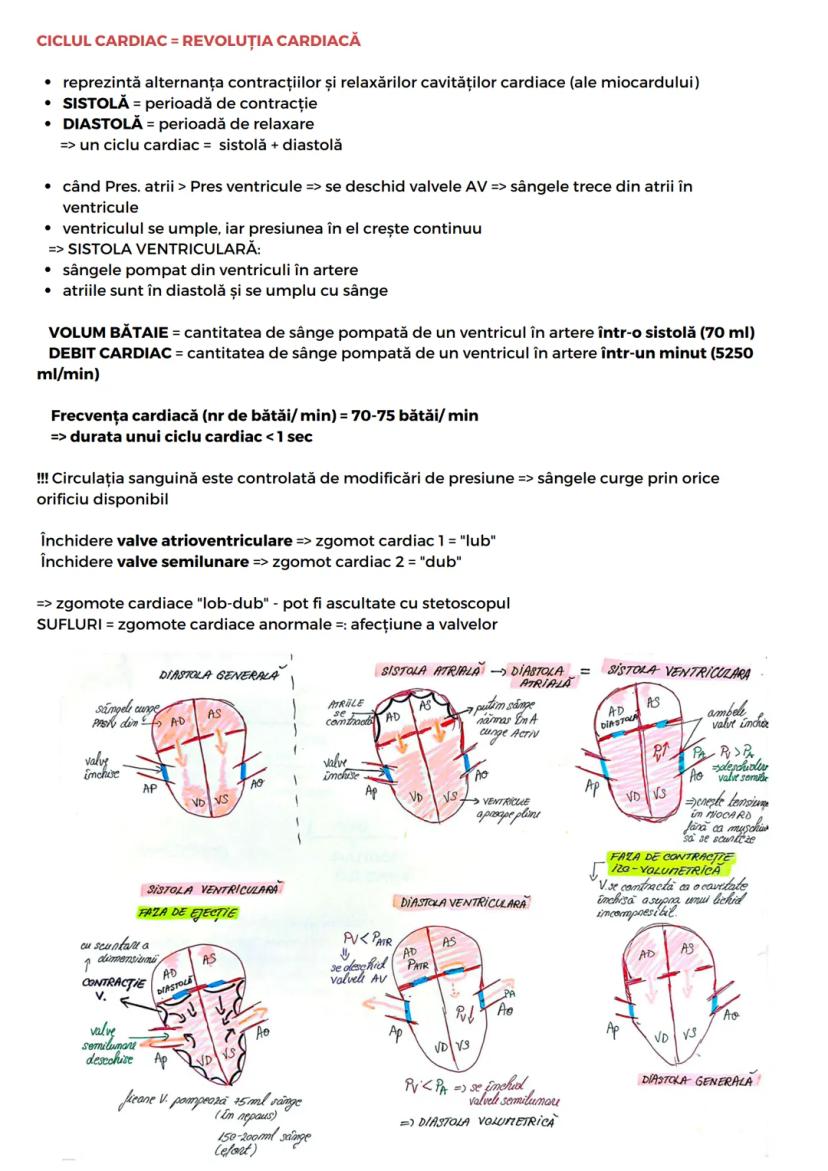 CICLUL CARDIAC = REVOLUȚIA CARDIACĂ
• reprezintă alternanța contracțiilor și relaxărilor cavităților cardiace (ale miocardului)
• SISTOLĂ = perioadă de contracție
• DIASTOLĂ = perioadă de relaxare
=> un ciclu cardiac = sistolă + diastolă
• când Pres. atrii > Pres ventricule => se deschid valvele AV => sângele trece din atrii în
ventricule
• ventriculul se umple, iar presiunea în el crește continuu
=> SISTOLA VENTRICULARĂ:
• sângele pompat din ventriculi în artere
• atriile sunt în diastolă și se umplu cu sânge
VOLUM BĂTAIE = cantitatea de sânge pompată de un ventricul în artere într-o sistolă (70 ml)
DEBIT CARDIAC = cantitatea de sânge pompată de un ventricul în artere într-un minut (5250
ml/min)
Frecvența cardiacă (nr de bătăi/ min) = 70-75 bătăi/ min
=> durata unui ciclu cardiac < 1 sec
!!! Circulația sanguină este controlată de modificări de presiune => sângele curge prin orice
orificiu disponibil
Închidere valve atrioventriculare => zgomot cardiac 1 = "lub"
Închidere valve semilunare => zgomot cardiac 2 = "dub"
=> zgomote cardiace "lob-dub" - pot fi ascultate cu stetoscopul
SUFLURI = zgomote cardiace anormale =: afecțiune a valvelor
DIASTOLA GENERALĂ
sângele curge
PASIV din
AD
AS
valve
închise
AP
AO
VD
VS
SISTOLA ATRIALĂ → DIASTOLA
ATRIALĂ
=
ATRIILE
se
contractă
AD
AS
puțin sânge
rămas în A
curge ACTIV
valve
închise
Ap
Ao
VD
VS
→ VENTRICULE
aproape pline
SISTOLA VENTRICULARĂ
AD
DIASTOLĂ
AS
ambele
valve închise
PV↑
PA
PV > PA
=> deschidere
valve semilu
Ap
Ao
VD
VS
=> crește tensiunea
în MIOCARD
fără ca mușchiul
să se scurteze
FAZA DE CONTRACȚIE
IZO-VOLUMETRICĂ
V. se contractă ca o cavitate
închisă asupra unui lichid
incompresibil.
SISTOLA VENTRICULARĂ
FAZA DE EJECȚIE
cu scurtare a
↑ dimensiunii
CONTRACȚIE
V.
AD
DIASTOLĂ
AS
valve
semilunare
deschise
Ap
Ao
VD
VS
fiecare V. pompează 75ml sânge
(în repaus)
150-200ml sânge
(efort)
DIASTOLA VENTRICULARĂ
PV < PATR
⇓
se deschid
valvele AV
AD
PATR
AS
PV↓
PA
Ap
Ao
VD
VS
PV < PA => se închid
valvele semilunare
=> DIASTOLA VOLUMETRICĂ
AD
AS
Ap
Ao
VD
VS
DIASTOLA GENERALĂ